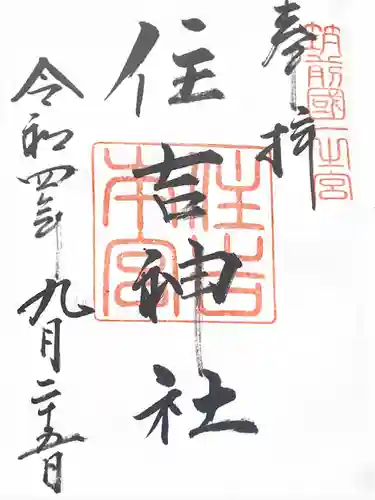 奉拝
筑前國一之宮
住吉神社
住吉本宮
令和四年九月二十五日